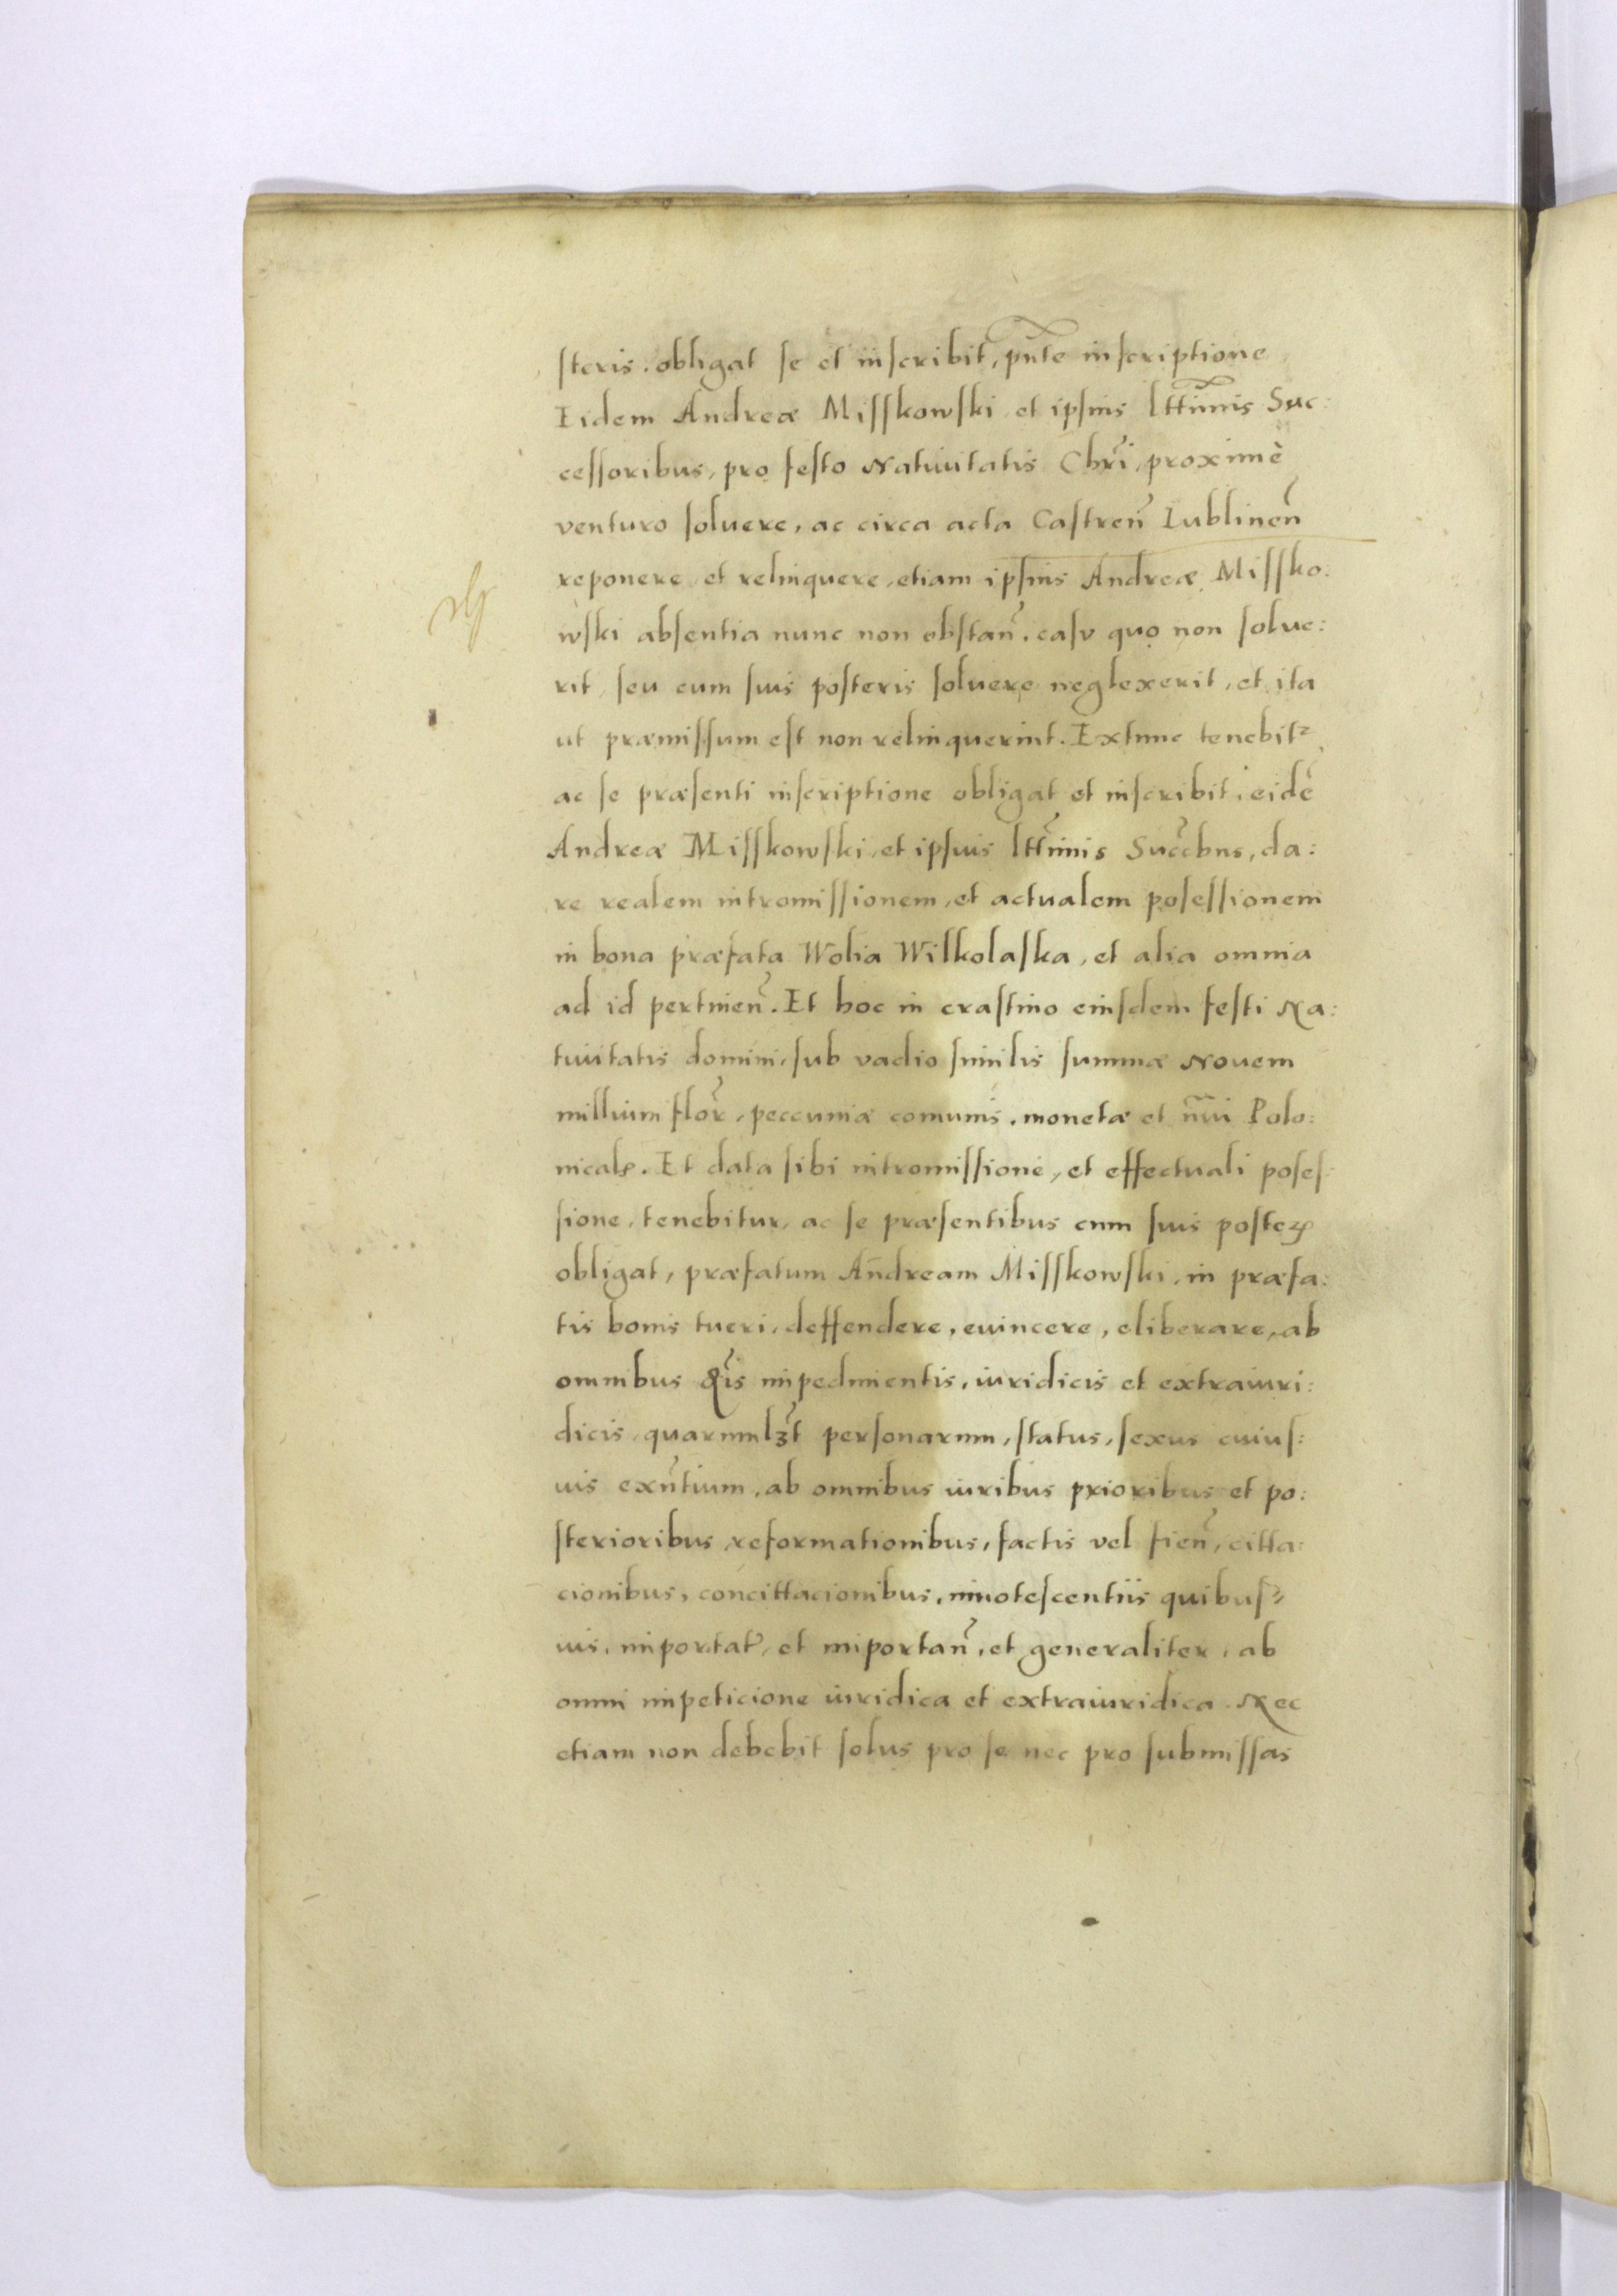 steris. obligat se et inscribit, pn̄te inscriptione
Eidem Andreæ Misskowski et ipsius lttimis Suc:
cessoribus, pro festo Natiuitatis Chr̄i, proximè
venturo soluere, ac circa acta Castren̄ Lublinen̄
reponere et relinquere, etiam ipsius Andreæ Missko:
wski absentia nunc non obstan̄. casv quo non solue:
rit, seu cum suis posteris soluere neglexerit, et ita
ut præmissum est non relinquerint. Extunc tenebit᷑
ac se præsenti inscriptione obligat et inscribit, eidē
Andreæ Misskowski, et ipsius lttimis Succ̄bus, da:
re realem intromissionem, et actualem posessionem
in bona præfata Wolia Wilkolaska, et alia omnia
ad id pertinen̄. Et hoc in crastino eiusdem festi Na:
tiuitatis domini, sub vadio similis summæ Nouem
millium flor̄, peccuniæ comunis, monetæ et nr̄i Polo:
nicalꝭ. Et data sibi intromissione, et effectuali poses:
sione, tenebitur, ac se præsentibus cum suis posteꝝ
obligat, præfatum Andream Misskowski, in præfa:
tis bonis tueri, deffendere, euincere, eliberare, ab
omnibus qīs impedimentis, iuridicis et extraiuri:
dicis, quarumlꝫt personarum, status, sexus cuius:
uis exn̄tium, ab omnibus iuribus prioribus et po:
sterioribus reformationibus, factis vel fien̄, citta:
cionibus, concittacionibus, innotescentiis quibus:
uis, importat̄, et importan̄, et generaliter, ab
omni impeticione iuridica et extraiuridica. Nec
etiam non debebit solus pro se nec pro submissas